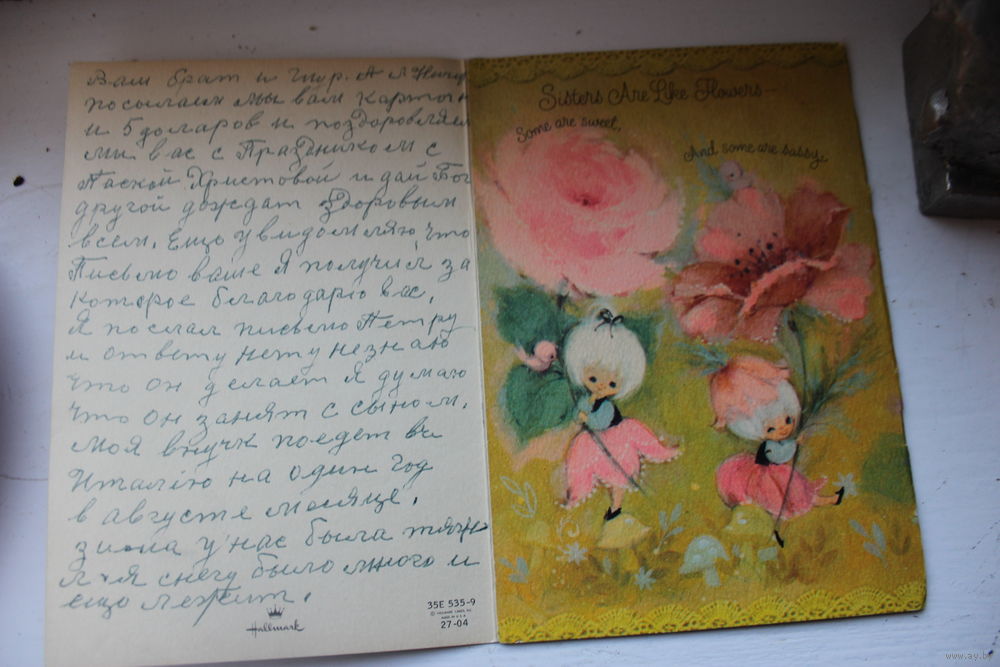 Ваш брат и
посылаем мы вам карточк
и 5 доларов и поздоровляем
мы вас с Праздником с
Паской Христовой и дай Бог
другой дождат здоровым
всем, ещо уведомляю, что
Письмо ваше я получил за
которое благодарю вас,
Я послал письмо Петру
и ответу нету незнаю
что он делает я думаю
что он занят с сыном.
моя внучк поедет ве
Италію на один год
в августе месяце,
зиома у нас была
снегу было много и
ещо лежит.
Hallmark
35E 535-9
© HALLMARK CARDS, INC.
MADE IN U.S.A.
27-04
Sisters Are Like Flowers—
Some are sweet,
And some are sassy,
www.ay.by